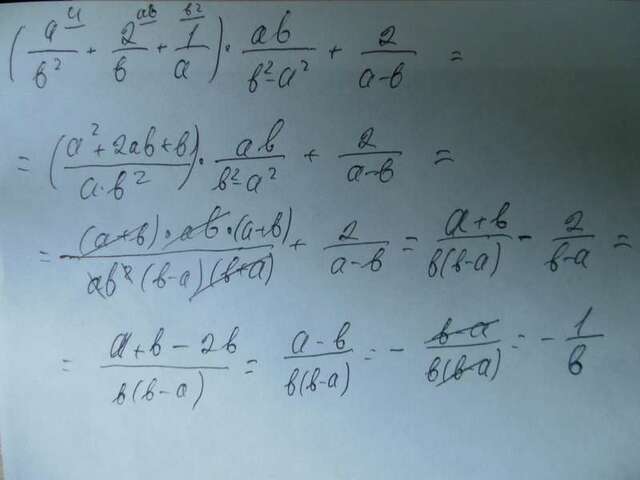 (a^a/b² + 2^ab/b + 1^b²/a) · ab/(b²-a²) + 2/(a-b) =
= ((a²+2ab+b)/(a·b²)) · ab/(b²-a²) + 2/(a-b) =
= (a+b)·ab·(a+b)/(ab²(b-a)(b+a)) + 2/(a-b) = (a+b)/(b(b-a)) - 2/(b-a) =
= (a+b-2b)/(b(b-a)) = (a-b)/(b(b-a)) = - (b-a)/(b(b-a)) = - 1/b